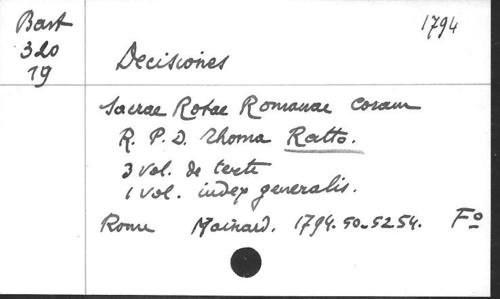 Bart
320
19
1794
Decisiones
Sacrae Rotae Romanae coram
R. P. D. Thoma Ratto.
3 vol. de texte
1 vol. index generalis.
Rome Mainard. 1794.50-5254. Fo